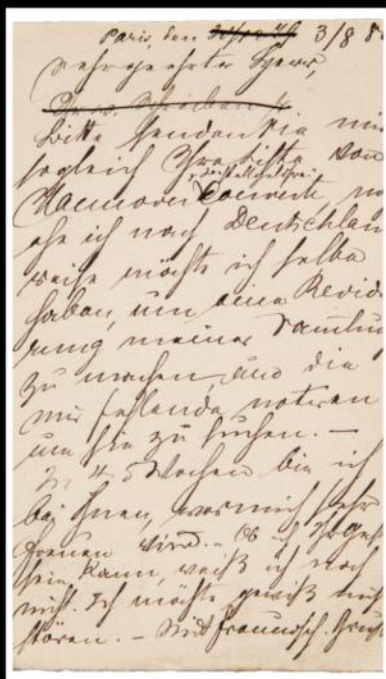 Paris, den 3/8 8
Sehr geehrter Herr,
Bitte senden Sie mir
sogleich Ihre Liste von
Hannover Couverte,
ehe ich nach Deutschlan
reise möchte ich selbe
haben, um eine Revid
rung meiner Samlu
zu machen, und die
mir fehlende notiren
um sie zu suchen. —
In 4-5 Wochen bin ich
bei Ihnen, was mich sehr
freuen wird. — Ob ich Ihr
sein kann, weiß ich noch
nicht. Ich möchte gewiß nich
stören. — Mit freundsch. Gruß